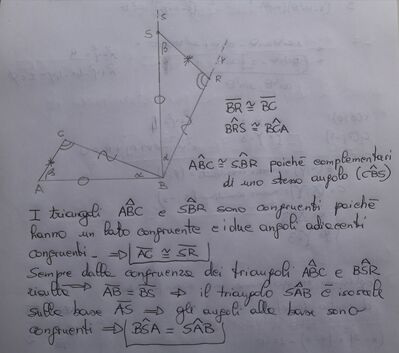 s
S
β
r
R
C
α
A
β
α
B
B̅R̅ ≅ B̅C̅
BR̂S ≅ BĈA
AB̂C ≅ SB̂R poiché complementari
di uno stesso angolo (CB̂S)
I triangoli AB̂C e SB̂R sono congruenti poiché
hanno un lato congruente e i due angoli adiacenti
congruenti. ⇒ A̅C̅ ≅ S̅R̅
Sempre dalla congruenza dei triangoli AB̂C e BŜR
risulta ⇒ A̅B̅ = B̅S̅ ⇒ il triangolo SÂB è isoscele
sulla base A̅S̅ ⇒ gli angoli alla base sono
congruenti ⇒ BŜA = SÂB